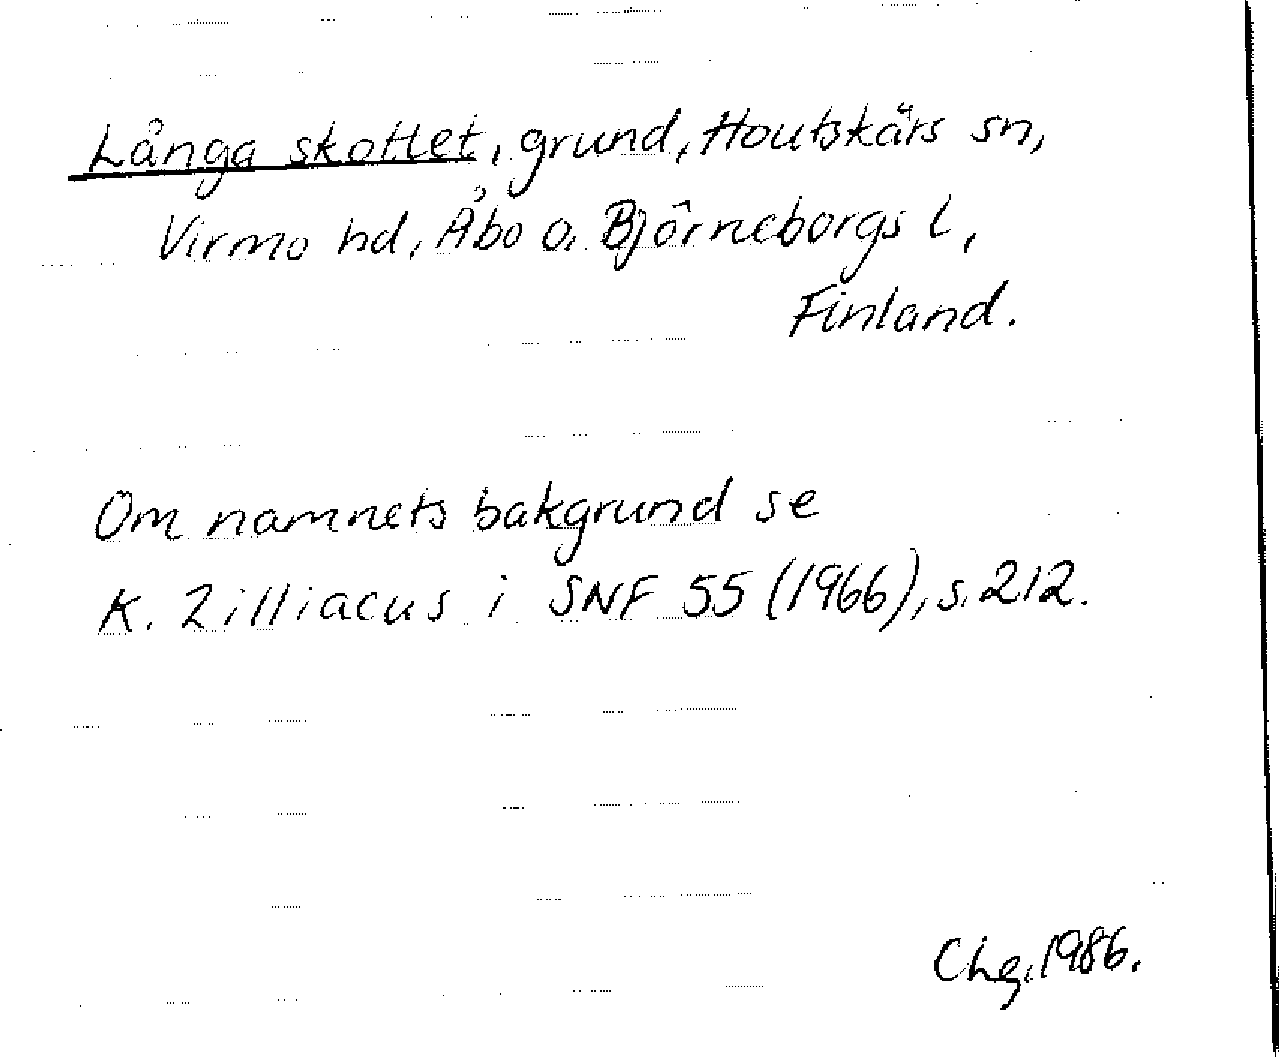 Långa skottet, grund, Houtskärs sn,
Virmo hd, Åbo o. Björneborgs l,
Finland.
Om namnets bakgrund se
K. Zilliacus i SNF 55 (1966), s. 212.
Chg, 1986.